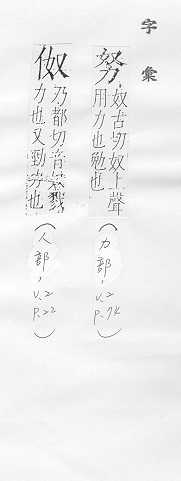 字彙
努 奴古切奴上聲
用力也勉也
（力部，V.2
P.74）
伮 乃都切音奴戮
力也又勁㞹也
（人部，V.2
P.22）